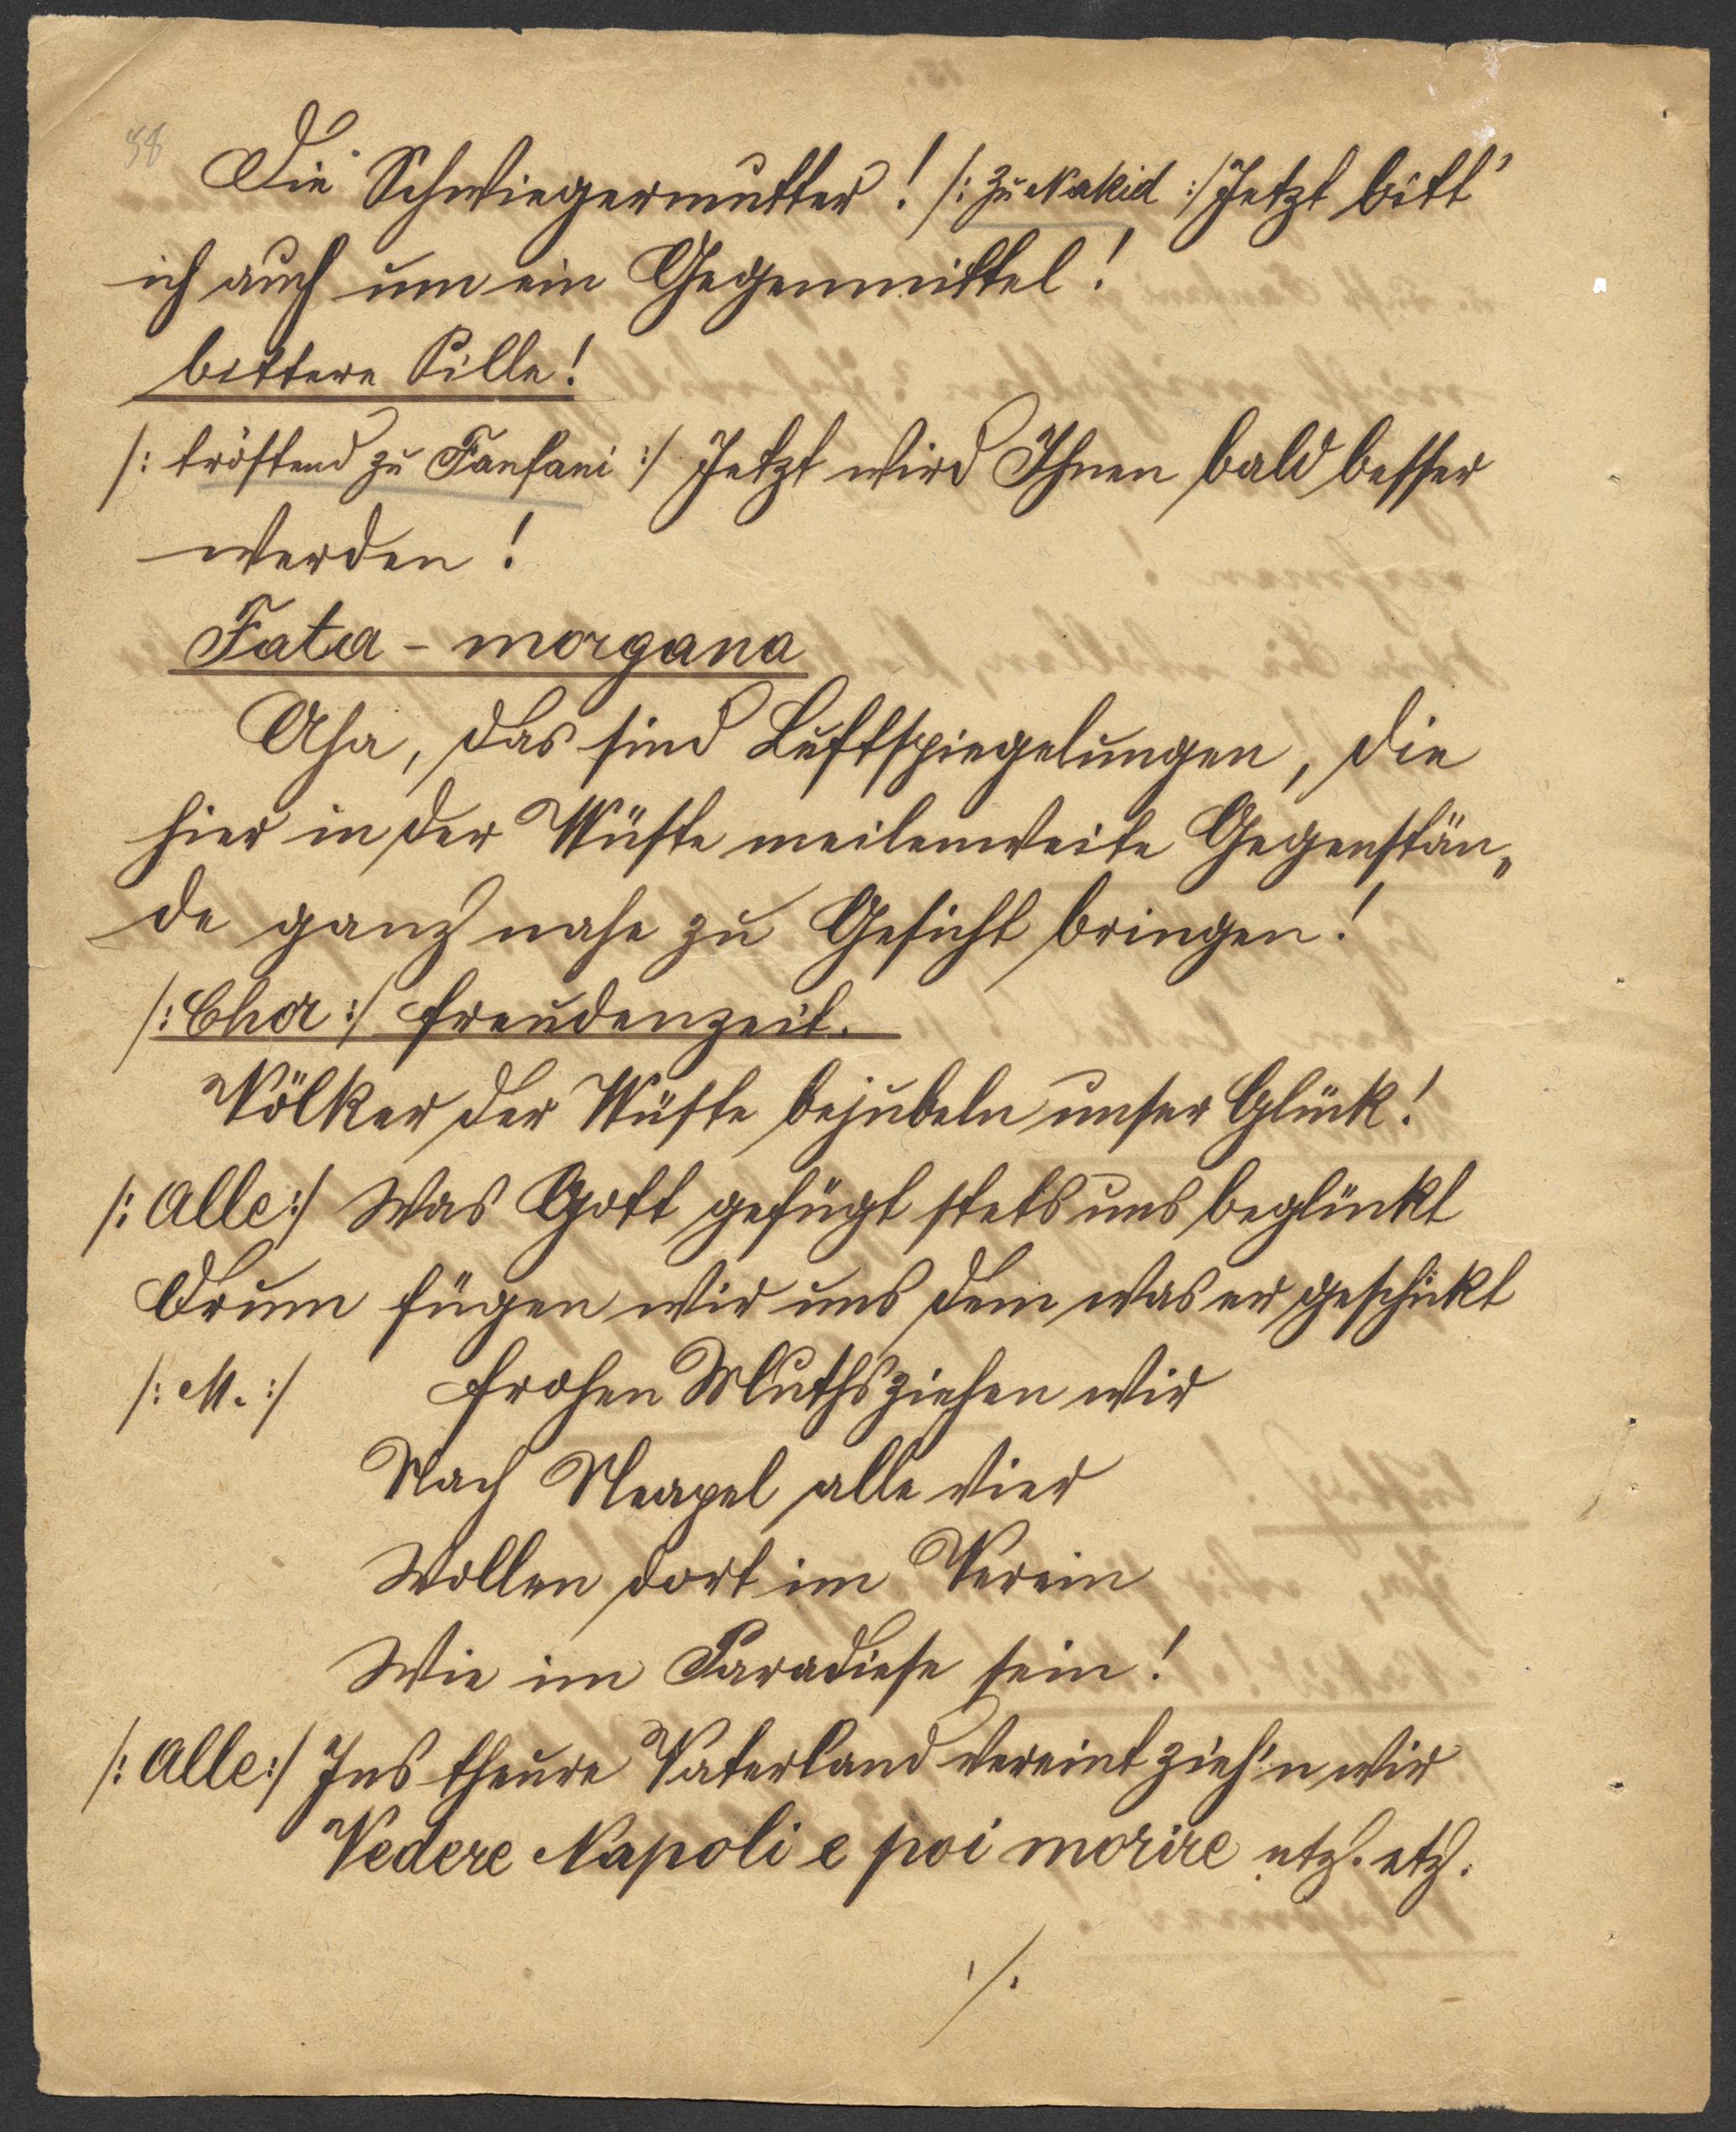 58
Die Schwiegermutter! /: zu Nakid :/ Jetzt bitt'
ich auch um ein Gegenmittel!
bittere Pille!
/: tröstend zu Fanfani :/ Jetzt wird Ihnen bald besser
werden!
Fata - morgana
Aha, das sind Luftspiegelungen, die
hier in der Wüste meilenweite Gegenstän„
de ganz nahe zu Gesicht bringen!
/: Chor :/ Freudenzeit.
Völker der Wüste bejubeln unser Glück!
/: Alle :/ Was Gott gefügt stets uns beglückt
Drum fügen wir uns dem was er geschickt
/: M. :/ Frohen Muths ziehen wir
Nach Neapel alle vier
Wollen dort im Verein
Wie im Paradiese sein!
/: Alle :/ Ins theure Vaterland vereint zieh'n wir
Vedere Napoli e poi morire etz. etz.
./.